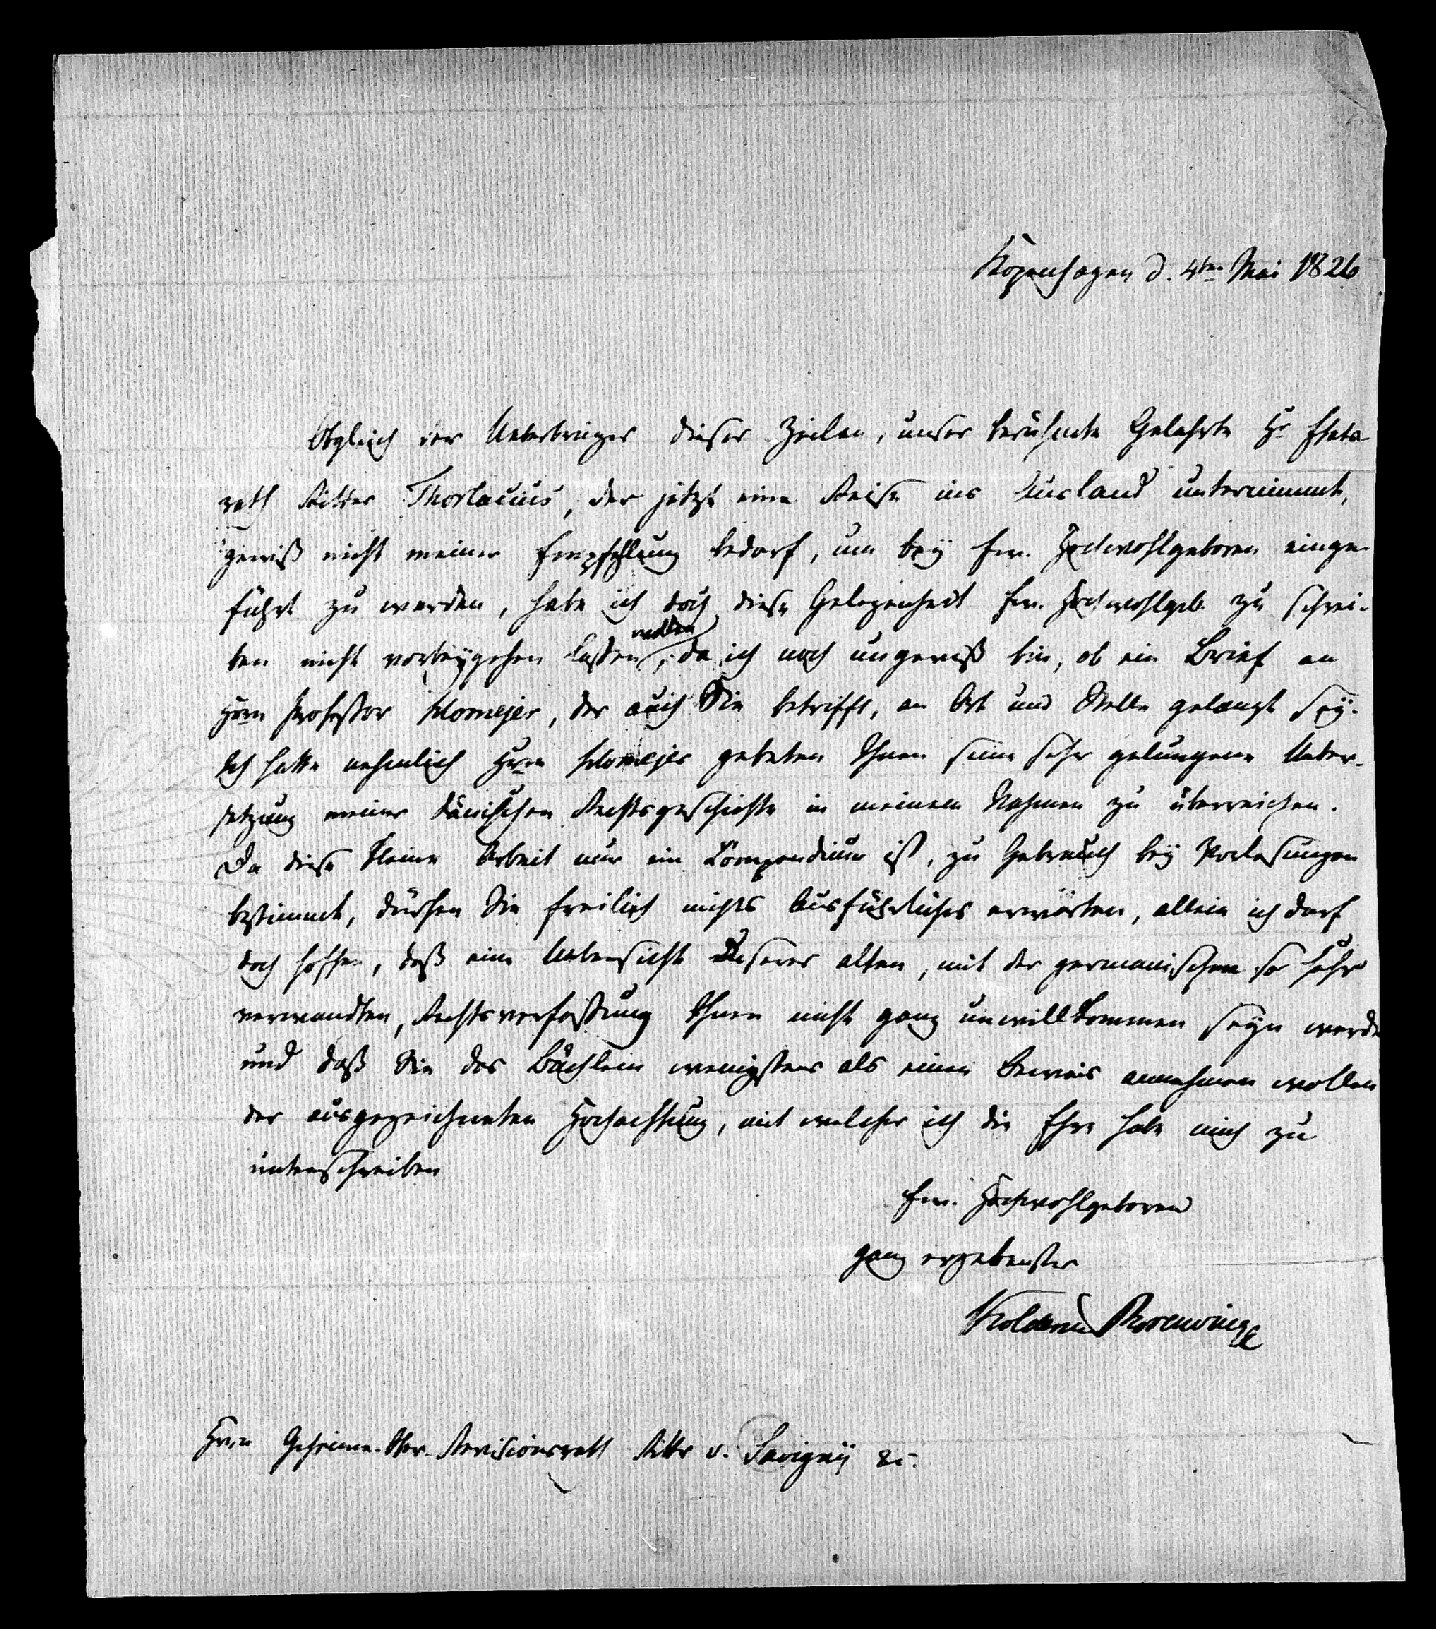 Kopenhagen d. 4ten Mai 1826
Obgleich der Ueberbringer dieser Zeilen, unser berühmte Gelehrte Hr Etats
rath Ritter Thorlacius, der jetzt eine Reise ins Ausland unternimmt,
gewiß nicht meiner Empfehlung bedarf, um bey Ew. Hochwohlgeboren einge-
führt zu werden, habe ich doch diese Gelegenheit Ew. Hochwohlgeb. zu schrei-
ben nicht vorbeygehen lassen wollen, da ich noch ungewiß bin, ob ein Brief an
Hrrn Professor Homejer, der auch Sie betrifft, an Ort und Stelle gelangt sey.
Ich hatte nehmlich Hrrn Homejer gebeten Ihnen seine sehr gelungene Ueber-
setzung meiner dänischen Rechtsgeschichte in meinem Nahmen zu überreichen.
Da diese kleine Arbeit nur ein Compendium ist, zu Gebrauch bey Vorlesungen
bestimmt, dürfen Sie freilich nichts Ausführliches erwarten, allein ich darf
doch hoffen, daß eine Uebersicht unserer alten, mit der germanischen so sehr
verwandten, Rechtsverfassung Ihnen nicht ganz unwillkommen seyn werde
und daß Sie das Büchlein wenigstens als einen Beweis annehmen wollen
der ausgezeichneten Hochachtung, mit welcher ich die Ehre habe mich zu
unterschreiben
Ew. Hochwohlgeboren
ganz ergebenster
Kolderup Rosenvinge
Hrrn Geheime-Ober-Revisionsrath Ritter v. Savigny &c.